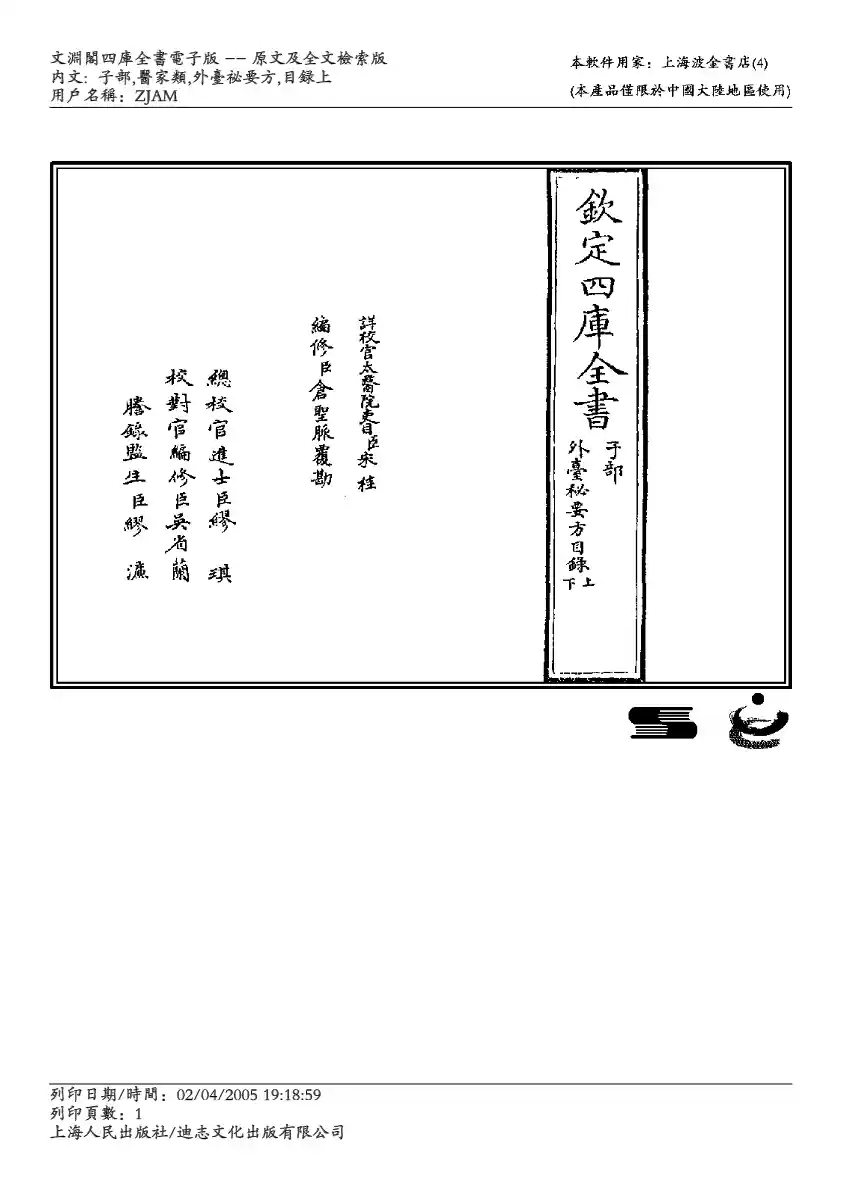 文淵閣四庫全書電子版 -- 原文及全文檢索版
内文: 子部,醫家類,外臺祕要方,目録上
用戶名稱：ZJAM
本軟件用家：上海波金書店(4)
(本產品僅限於中國大陸地區使用)
欽定四庫全書
子部
外臺秘要方目錄上下
詳校官太醫院吏目臣宋桂
編修臣倉聖脈覆勘
總校官進士臣繆琪
校對官編修臣吳省蘭
謄錄監生臣繆濂
列印日期/時間：02/04/2005 19:18:59
列印頁數：1
上海人民出版社/迪志文化出版有限公司